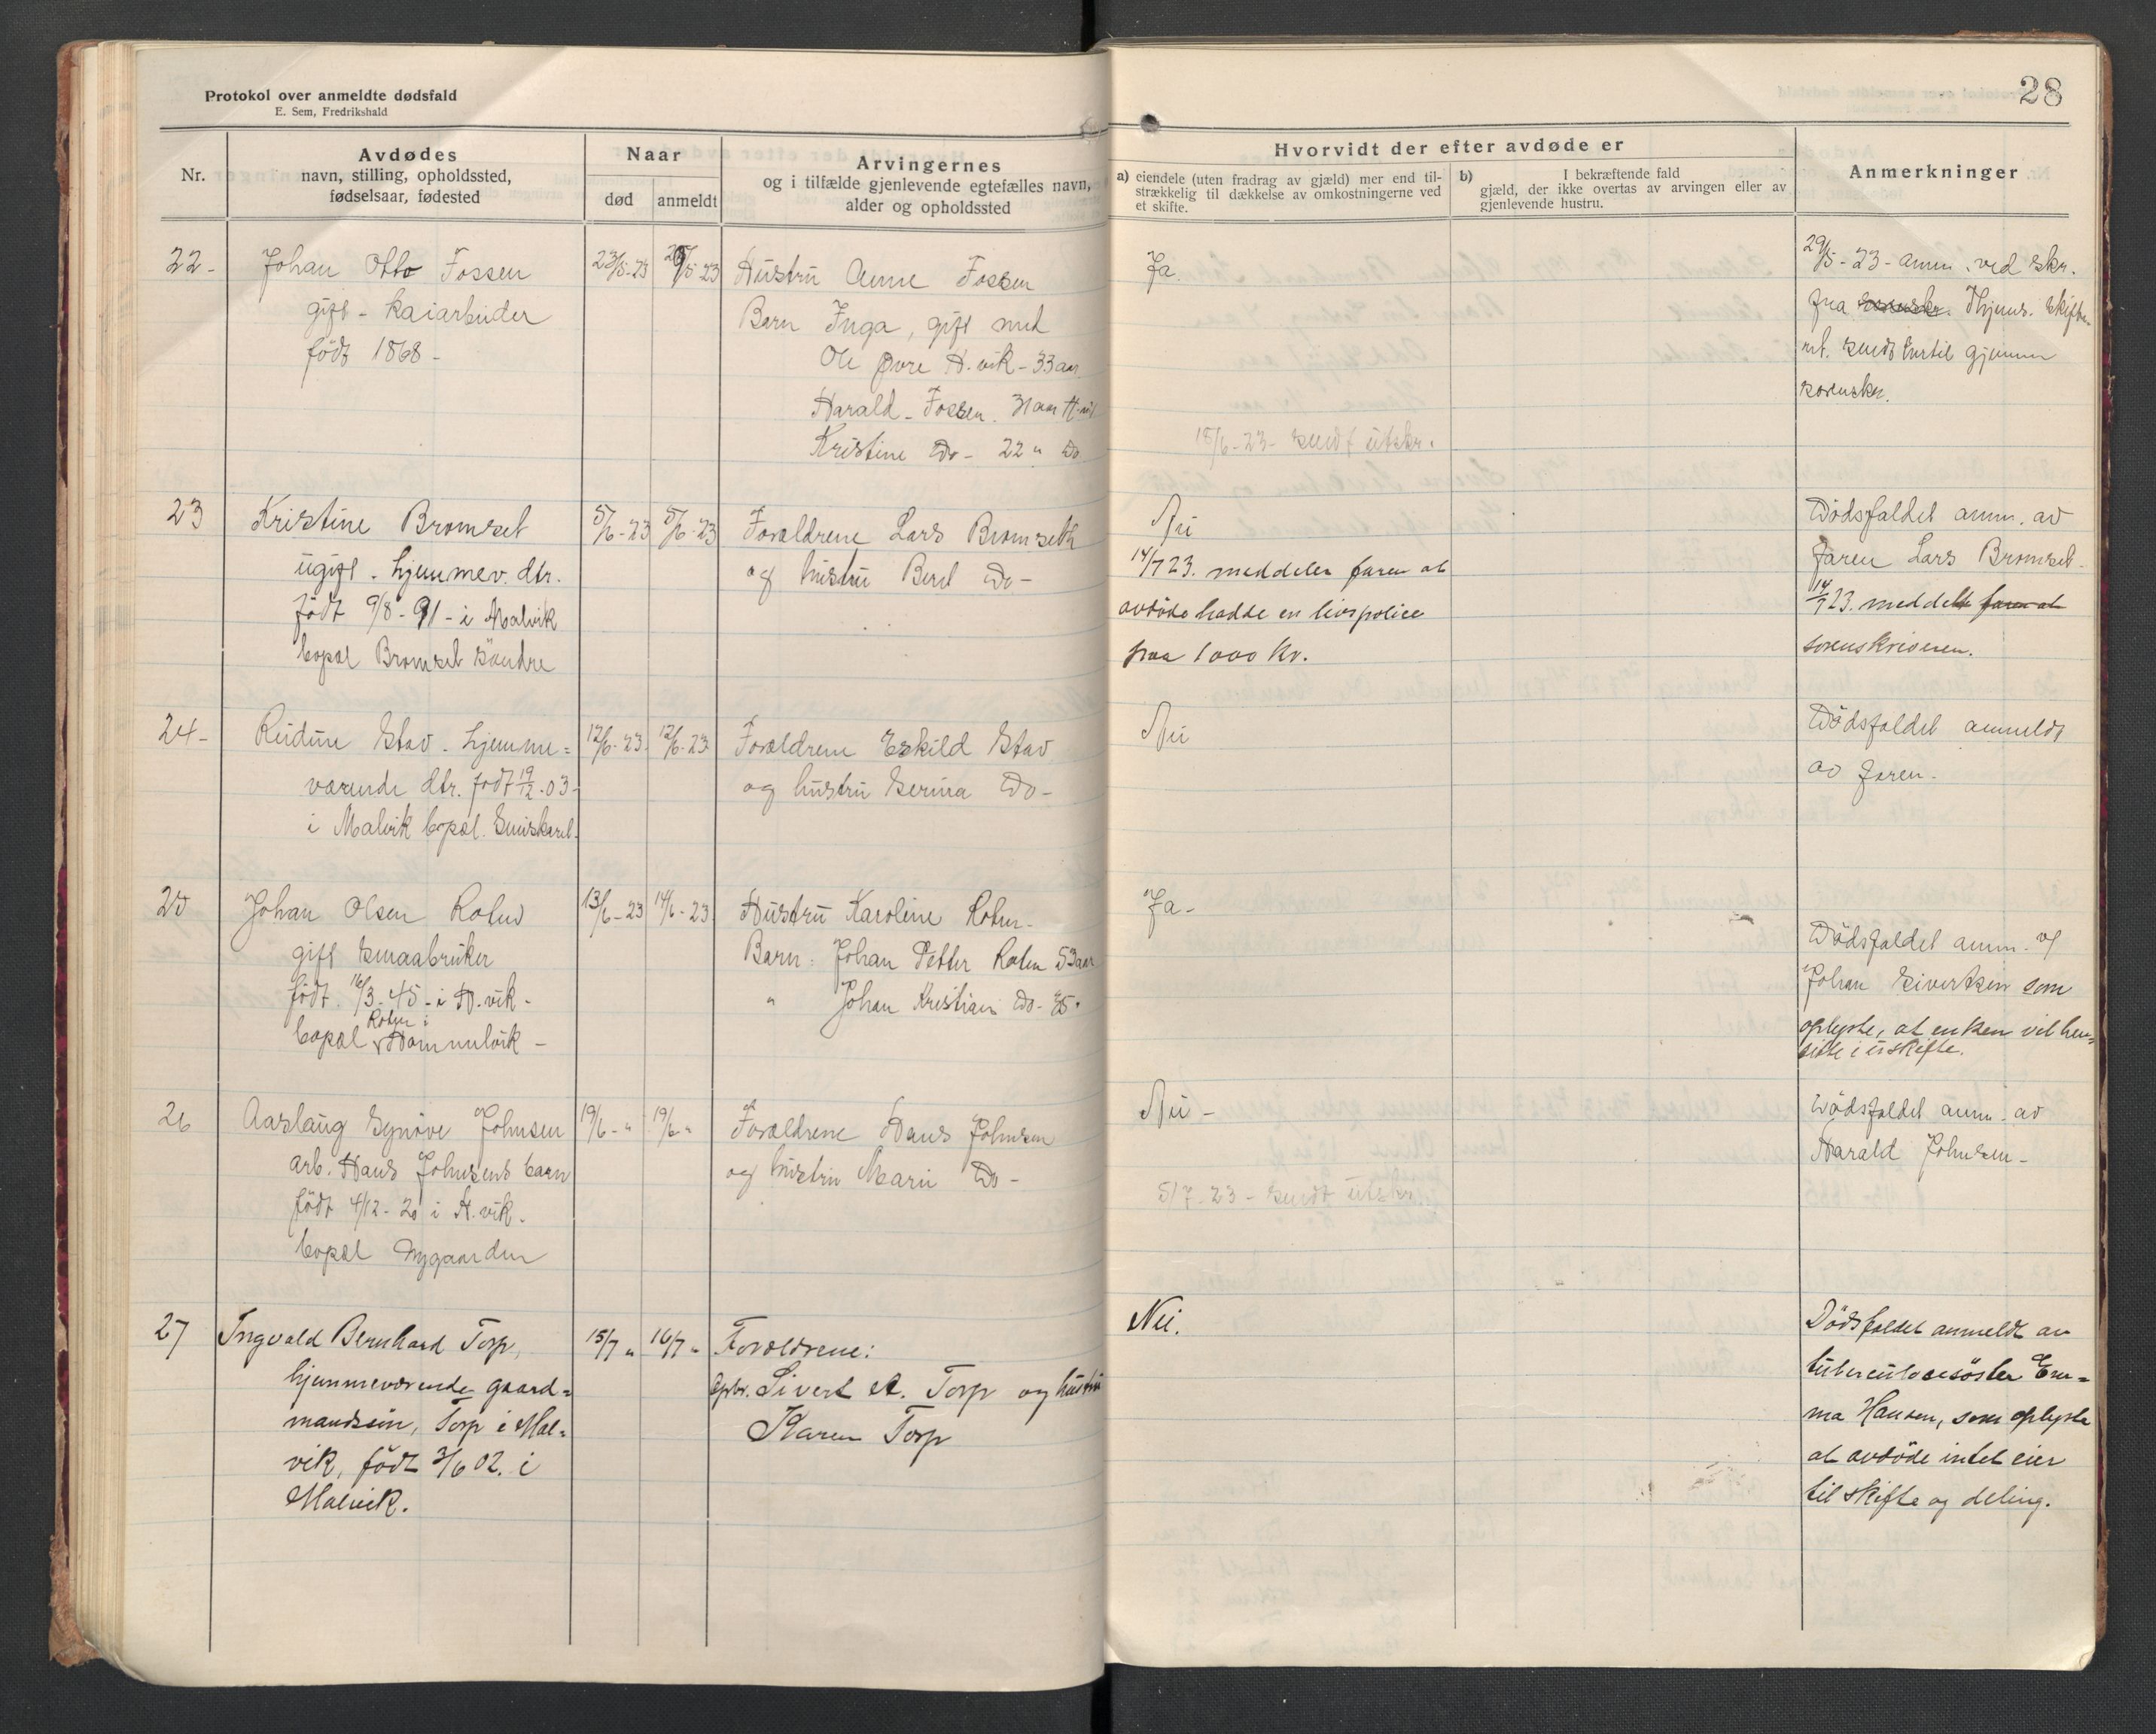 Protokol over anmeldte dødsfald
E. Sem, Fredrikshald
28
Nr.
Avdødes
navn, stilling, opholdssted,
fødselsaar, fødested
Naar
død
anmeldt
Arvingernes
og i tilfælde gjenlevende egtefælles navn,
alder og opholdssted
Hvorvidt der efter avdøde er
a) eiendele (uten fradrag av gjæld) mer end til-
strækkelig til dækkelse av omkostningerne ved
et skifte.
b) I bekræftende fald
gjæld, der ikke overtas av arvingen eller av
gjenlevende hustru.
Anmerkninger
22-
Johan Otto Fossen
gift - kaiarbeider
född 1868-
23/5-23
Hustru Anne Fossen
Barn Inga, gift med
Ole Øvre H.vik - 33 aar
Harald Fossen. 31 aar H.vik
Kristine Do - 22 " Do
Ja.
15/6-23- sendt utskr.
29/5-23- anm. ved skr.
fra Thjems. skifte-
ret. sendt hertil gjennem
sorenskr.
23
Kristine Bromset
ugift. hjemmev. dtr.
född 9/8-91- i Malvik
bopæl Bromset söndre
5/6-23
5/6-23
Forældrene Lars Bromseth
og hustru Beret Do-
Nei
14/7 23. meddeler faren at
avdöde hadde en livspolice
paa 1000 Kr.
Dödsfaldet anm. av
faren Lars Bromset.
14/7 23. meddelt faren at
sorenskriveren.
24-
Reidun Stav. hjemme=
værende dtr. född 19/12-03-
i Malvik bopæl.
12/6-23.
12/6-23
Forældrene Eskild Stav
og hustru Serina Do-
Nei
Dödsfaldet anmeldt
av faren.
25
Johan Olsen Roten
gift smaabruker
född. 16/3-45- i H.vik-
Roten i
bopæl Hommelvik-
13/6-23
14/6-23
Hustru Karoline Roten-
Barn: Johan Petter Roten 53 aar
" Johan Kristian Do- 35 "
Ja-
Dödsfaldet anm. af
Johan Sivertsen som
oplyste, at enken vil hen=
sitte i uskifte.
26
Aaslaug Synöve Johnsen
arb. Hans Johnsens barn
född 4/12-20 i H.vik-
bopæl Nygaarden
19/6-"
19/6-"
Forældrene Hans Johnsen
og hustru Marie Do-
Nei-
5/7-23- sendt utskr.
Dödsfaldet anm. av
Harald Johnsen-
27
Ingvald Bernhard Torp,
hjemmeværende gaard=
mandssön, Torp i Mal=
vik, född 3/6 02. i
Malvik.
15/7 "
16/7 "
Forældrene:
Gpbr. Sivert A. Torp og hustru
Karen Torp
Nei.
Dödsfaldet anmeldt av
tuberculosesöster Em=
ma Hansen, som oplyste
at avdöde intet eier
til skifte og deling.